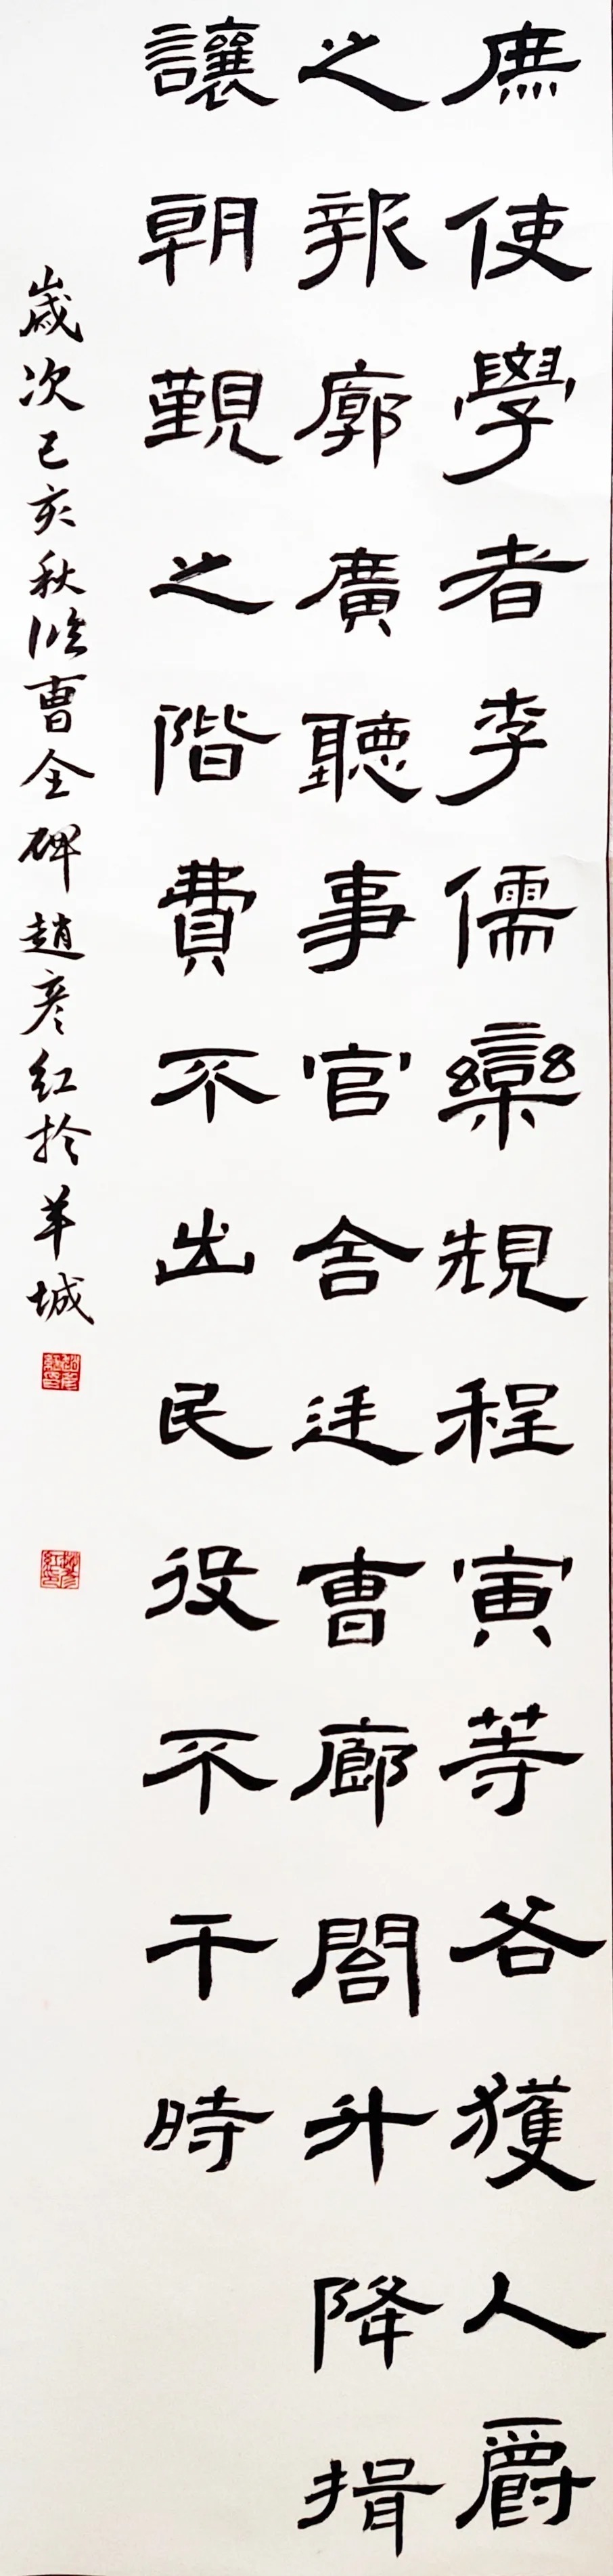 庶使學者李儒欒規程寅等各獲人爵
之報廓廣聽事官舍廷曹廊閤升降揖
讓朝覲之階費不出民役不干時
歲次己亥秋臨曹全碑趙彥紅於羊城